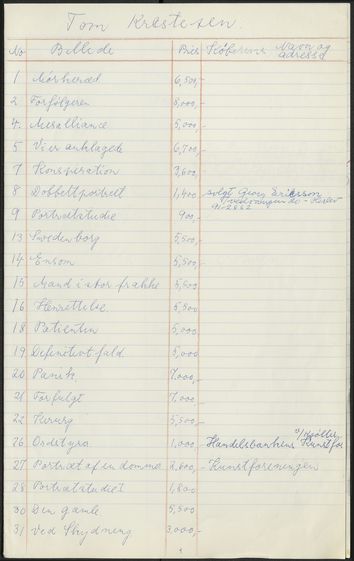 Tom Krestesen.
No Billede Pris Køberens Navn og adresse
1 Nærhered 6,500,-
2 Forfølgeren 5,000,-
4. Mesalliance 5,000,-
5 Vi er anklagede 6,700,-
7 Konspiration 3,600,-
8 Dobbeltportræt 1,400 solgt Georg Erikson
91-2882
9 Portrætstudie 900,-
13 Swedenborg 5,500,-
14 Ensom 5,500,-
15 Mand i stor frakke 5,500
16 Henrettelse 5,500
18 Patienten 5,000
19 Definitivt fald 5,000
20 Panik 7,000,-
21 Forfulgt 7,000,-
22 Kirurg 5,500,-
26 Ordstyrer 1,000,- Handelsbankens Kunstfor
27 Portræt af en dommer 2,600,- Kunstforeningen
28 Portrætstudie I 1,800
30 Den gamle 5,500
31 Ved Skydning 3,000,-